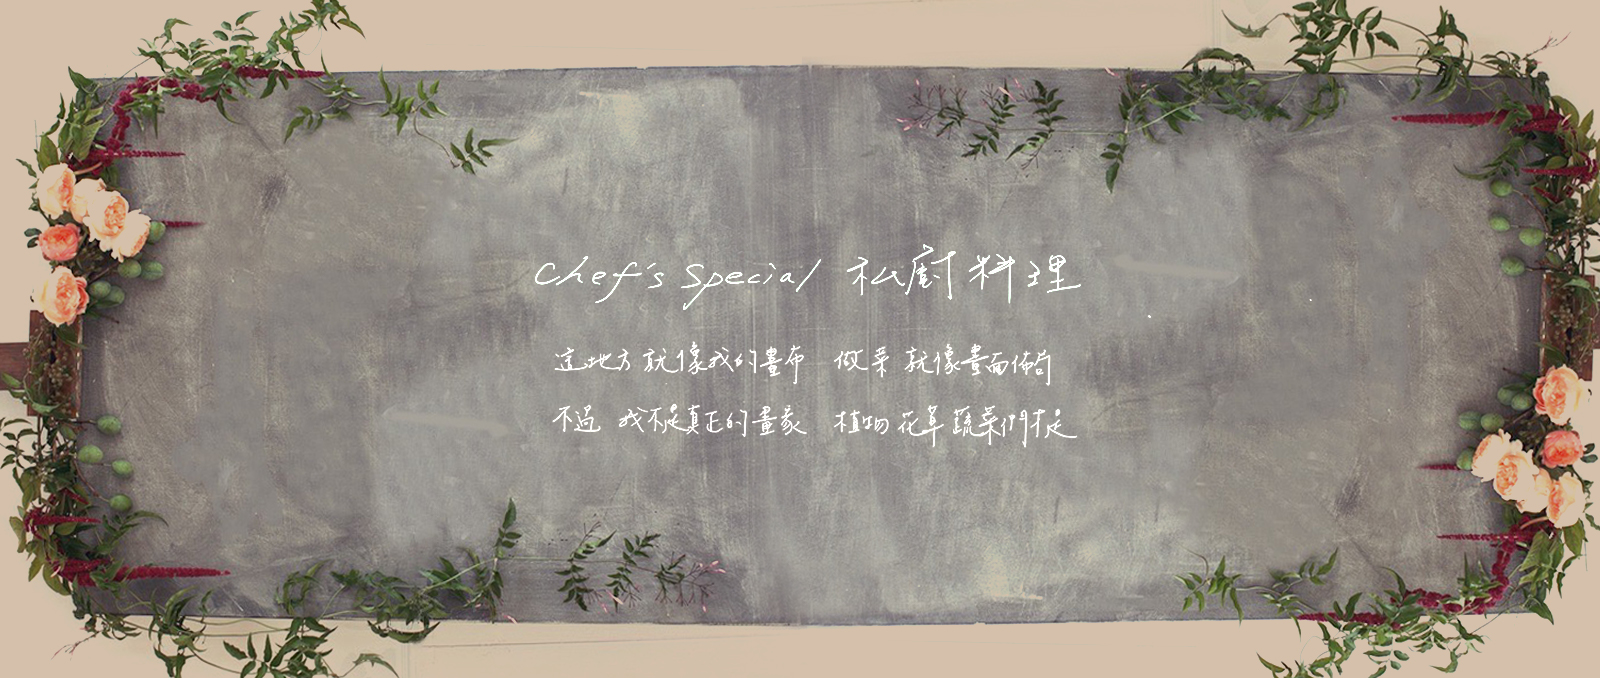 Chef's Special 私廚料理
這地方就像我的畫布 做菜就像畫面佈局
不過 我不是真正的畫家 植物花草蔬菜們才是